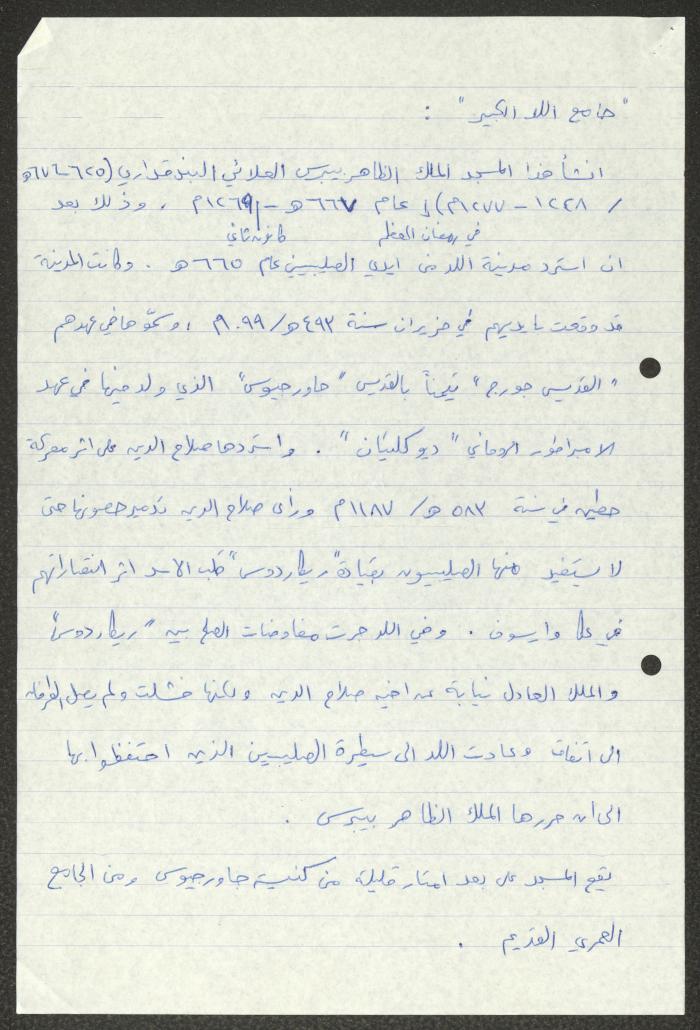 "جامع اللد الكبير" :
انشأ هذا المسجد الملك الظاهر بيبرس العلائي البندقداري (٦٢٥-٦٧٦هـ
/ ١٢٢٨ - ١٢٧٧م) في عام ٦٦٧هـ - ١٢٦٩م ، وذلك بعد
في رمضان المعظم كانون ثاني
ان استرد مدينة اللد من ايدي الصليبيين عام ٦٦٥هـ . وكانت المدينة
قد وقعت بايديهم في حزيران سنة ٤٩٣هـ/١٠٩٩م ، وسمّوها في عهدهم
"القديس جورج" تيمناً بالقديس "جاورجيوس" الذي ولد فيها في عهد
الامبراطور الروماني "ديوكلتيان" . واستردها صلاح الدين على اثر معركة
حطين في سنة ٥٨٣هـ/ ١١٨٧م ورأى صلاح الدين تدمير حصونها حتى
لا يستفيد منها الصليبيون بقيادة "ريكاردوس" قلب الاسد اثر انتصاراتهم
في عكا وارسوف . وفي اللد جرت مفاوضات الصلح بين "ريكاردوس"
والملك العادل نيابة عن اخيه صلاح الدين ولكنها فشلت ولم يصل الطرفان
الى اتفاق وعادت اللد الى سيطرة الصليبيين الذين احتفظوا بها
الى أن حررها الملك الظاهر بيبرس .
يقع المسجد على بعد امتار قليلة من كنيسة جاورجيوس ومن الجامع
العمري القديم .